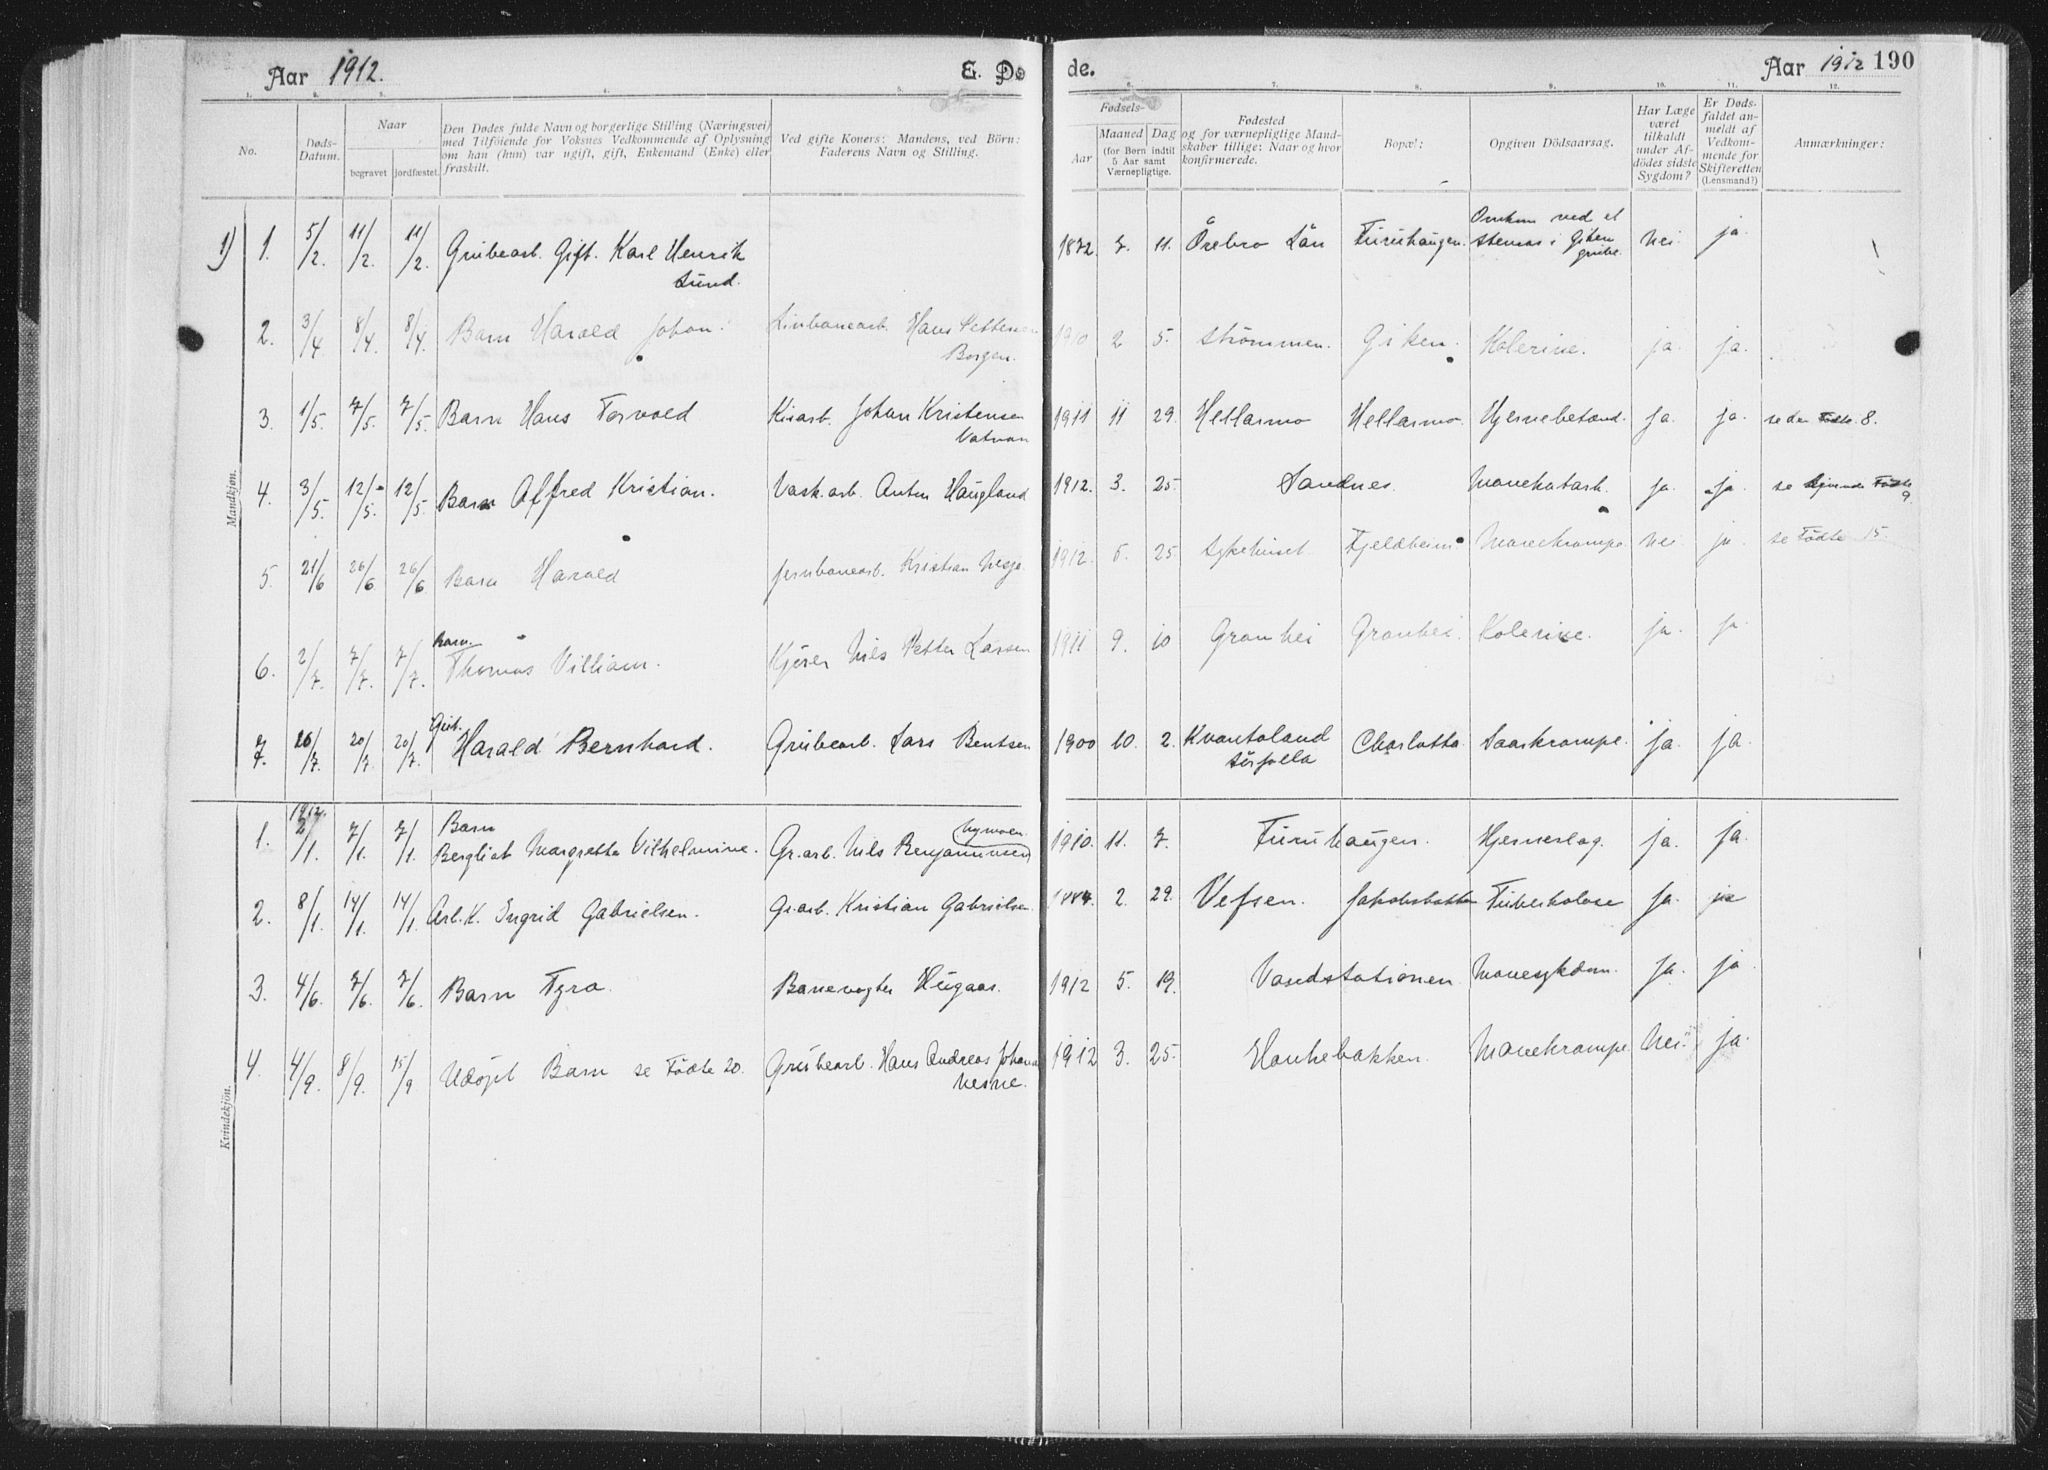 Aar 1912. E. Dø
de. Aar 1912 190
1. 2. 3. 4. 5. 6. 7. 8. 9. 10. 11. 12.
No.
Døds-Datum.
Naar
begravet jordfæstet.
Den Dødes fulde Navn og borgerlige Stilling (Næringsvei)
med Tilföiende for Voksnes Vedkommende af Oplysning
om han (hun) var ugift, gift, Enkemand (Enke) eller
fraskilt.
Ved gifte Koners: Mandens, ved Börn:
Faderens Navn og Stilling.
Fødsels-
Aar
Maaned Dag
(for Børn indtil
5 Aar samt
Værnepligtige.
Fødested
og for værnepligtige Mand-
skaber tillige: Naar og hvor
konfirmerede.
Bopæl:
Opgiven Dödsaarsag.
Har Læge
været
tilkaldt
under Af-
dödes sidste
Sygdom?
Er Døds-
faldet an-
meldt af
Vedkom-
mende for
Skifteretten
(Lensmand?)
Anmærkninger:
Mandkjøn.
1) 1. 5/2. 11/2. 11/2. Grubearb. Gift. Karl Henrik Sund. 1872. 7. 11. Örebro Län Furuhaugen. Omkom ved et stenras i Giken grube. nei. ja.
2. 3/4 8/4. 8/4. Barn Harald Johan. Linbanearb. Hans Pettersen Borgen. 1910 2 5. Strömmen. Giken. Kolerine. ja. ja.
3. 1/5. 7/5. 7/5. Barn Hans Torvald Kisarb. Johan Kristensen Vatnan 1911 11 29. Hellarmo Hellarmo. Hjernebetænd. ja. ja. se den Födte 8.
4. 3/5. 12/5. 12/5. Barn Alfred Kristian. Vask.arb. Anton Haugland 1912. 3. 25. Sandnes. Mavekatarh. ja. ja. se Födte 9
5. 21/6 26/6 26/6 Barn Harald Jernbanearb. Kristian 1912. 6. 25 Sykehuset Fjeldheim. Mavekrampe nei ja. se Födte 15.
6. 2/7. 7/7. 7/7. Barn. Thomas Villiam. Kjører Nils Petter Larsen 1911 9. 10 Granhei Granhei. Kolerine. ja. ja
7. 16/7. 20/7. 20/7. Gut. Harald Bernhard. Grubearb. Lars Bentsen 1900 10. 2. Kvantoland Sörfolla Charlotta. ja. ja.
Kvindekjön.
1. 1912. 2/1. 7/1. 7/1. Barn Bergliot Margrethe Vilhelmine. Gr.arb. Nils Benjaminsen Nymoen. 1910. 11. 7. Furuhaugen. Hjerneslag. ja. ja.
2. 8/1. 14/1. 14/1. Arb.K. Ingrid Gabrielsen. Gr.arb. Kristian Gabrielsen 2. 29. Vefsen. Jakobsbakken Tuberkolose ja. ja
3. 4/6. 7/6. 7/6. Barn Tyra. Banevogter Hugaas. 1912 5. 19. Vandstationen Mavesykdom. ja. ja
4. 4/9. 8/9. 15/9 Udöpt Barn se Födte 20. Grubearb. Hans Andreas Johans Nesne. 1912 3. 25. Hankebakken. Mavekrampe. nei. ja.